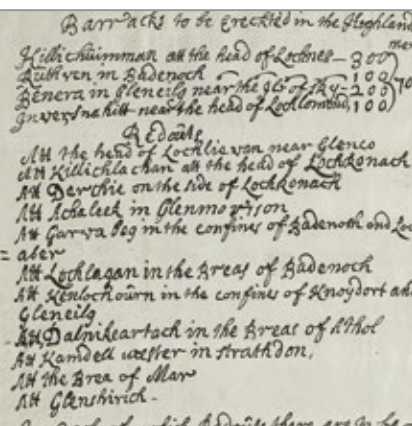 Barracks to be Erected in the Highland
men
Killichuimman att the head of Lochnes - 300
Ruthven in Badenoch 100
Benera in Gleneilg near the Ile of Sky - 200 70
Inversnahitt - near the head of Lochlomond, 100
Redouts
Att the head of Locklieven near Glenco
Att Killichlachan att the head of Lochkonach
Att Derchie on the side of Lochkonach
Att Achaleek in Glenmorison
Att Garva beg in the confines of Badenoch and Loc
= aber
Att Lochlagan in the Breas of Badenoch
Att Kenlochourn in the confines of Knoydort and
Gleneilg
Att Dalnikeartach in the Breas of Athol
Att Kamdell wester in strathdon,
Att the Brea of Mar
Att Glenshirich -
which Redouts there are to be